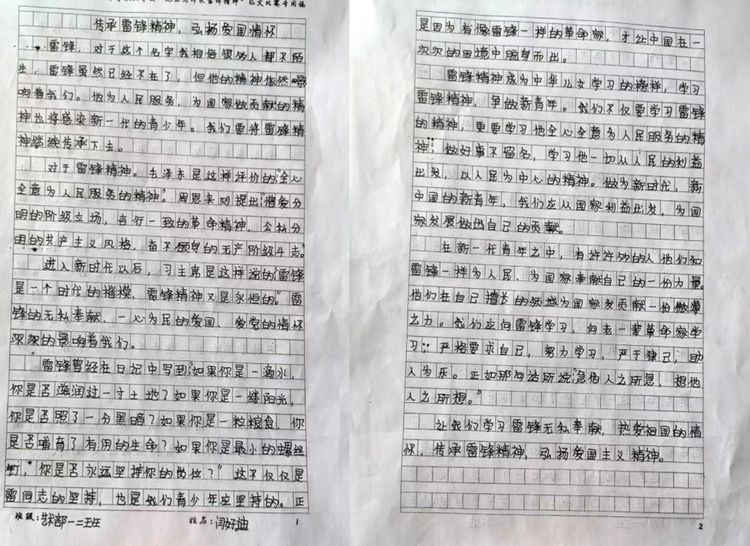 传承雷锋精神，弘扬爱国情怀
雷锋，对于这个名字我相信很多人都不陌
生，雷锋虽然已经不在了，但他的精神依然影
响着我们。他为人民服务，为国家做贡献的精
神也将感染新一代的青少年。我们要将雷锋精
神继续传承下去。
对于雷锋精神。毛泽东是这样评价的“全心
全意为人民服务的精神”周恩来则提出“憎爱分
明的阶级立场，言行一致的革命精神，公私分
明的共产主义风格，奋不顾身的无产阶级斗志。
进入新时代以后，习主席是这样说的“雷锋
是一个时代的楷模，雷锋精神又是永恒的。”雷
锋的无私奉献，一心为民的爱国、爱党的情怀
深深的影响着我们。
雷锋曾经在日记中写到“如果你是一滴水，
你是否滋润过一寸土地？如果你是一缕阳光，
你是否照了一分黑暗？如果你是一粒粮食，你
是否哺育了有用的生命？如果你是最小的螺丝
钉，你是否永远坚持你的岗位？”这不仅仅是
雷同志的坚持，也是我们青少年应坚持的。正
班级：艺术部一二班 姓名：闫好迪 1
是因为有像雷锋一样的革命家，才让中国在一
次次的困境中脱身而出。
雷锋精神成为中华儿女学习的榜样，学习
雷锋精神，争做新青年。我们不仅要学习雷锋
的精神，更要学习他全心全意为人民服务的精
神：做好事不留名，学习他一切从人民的利益
出发，以人民为中心的精神。做为新时代，新
中国的新青年，我们应从国家利益出发，为国
家发展做出自己的贡献。
在新一代青年之中，有许许多的人他们如
雷锋一样为人民、为国家奉献自己的一份力量。
他们在自己擅长的领域为国家发贡献一份微薄
之力。我们应向雷锋学习，向老一辈革命家学
习：严格要求自己，努力学习，严于律己，助
人为乐。正如那句话所说“急他人之所急，想他
人之所想。”
让我们学习雷锋无私奉献，热爱祖国的情
怀，传承雷锋精神，弘扬爱国主义精神。
2